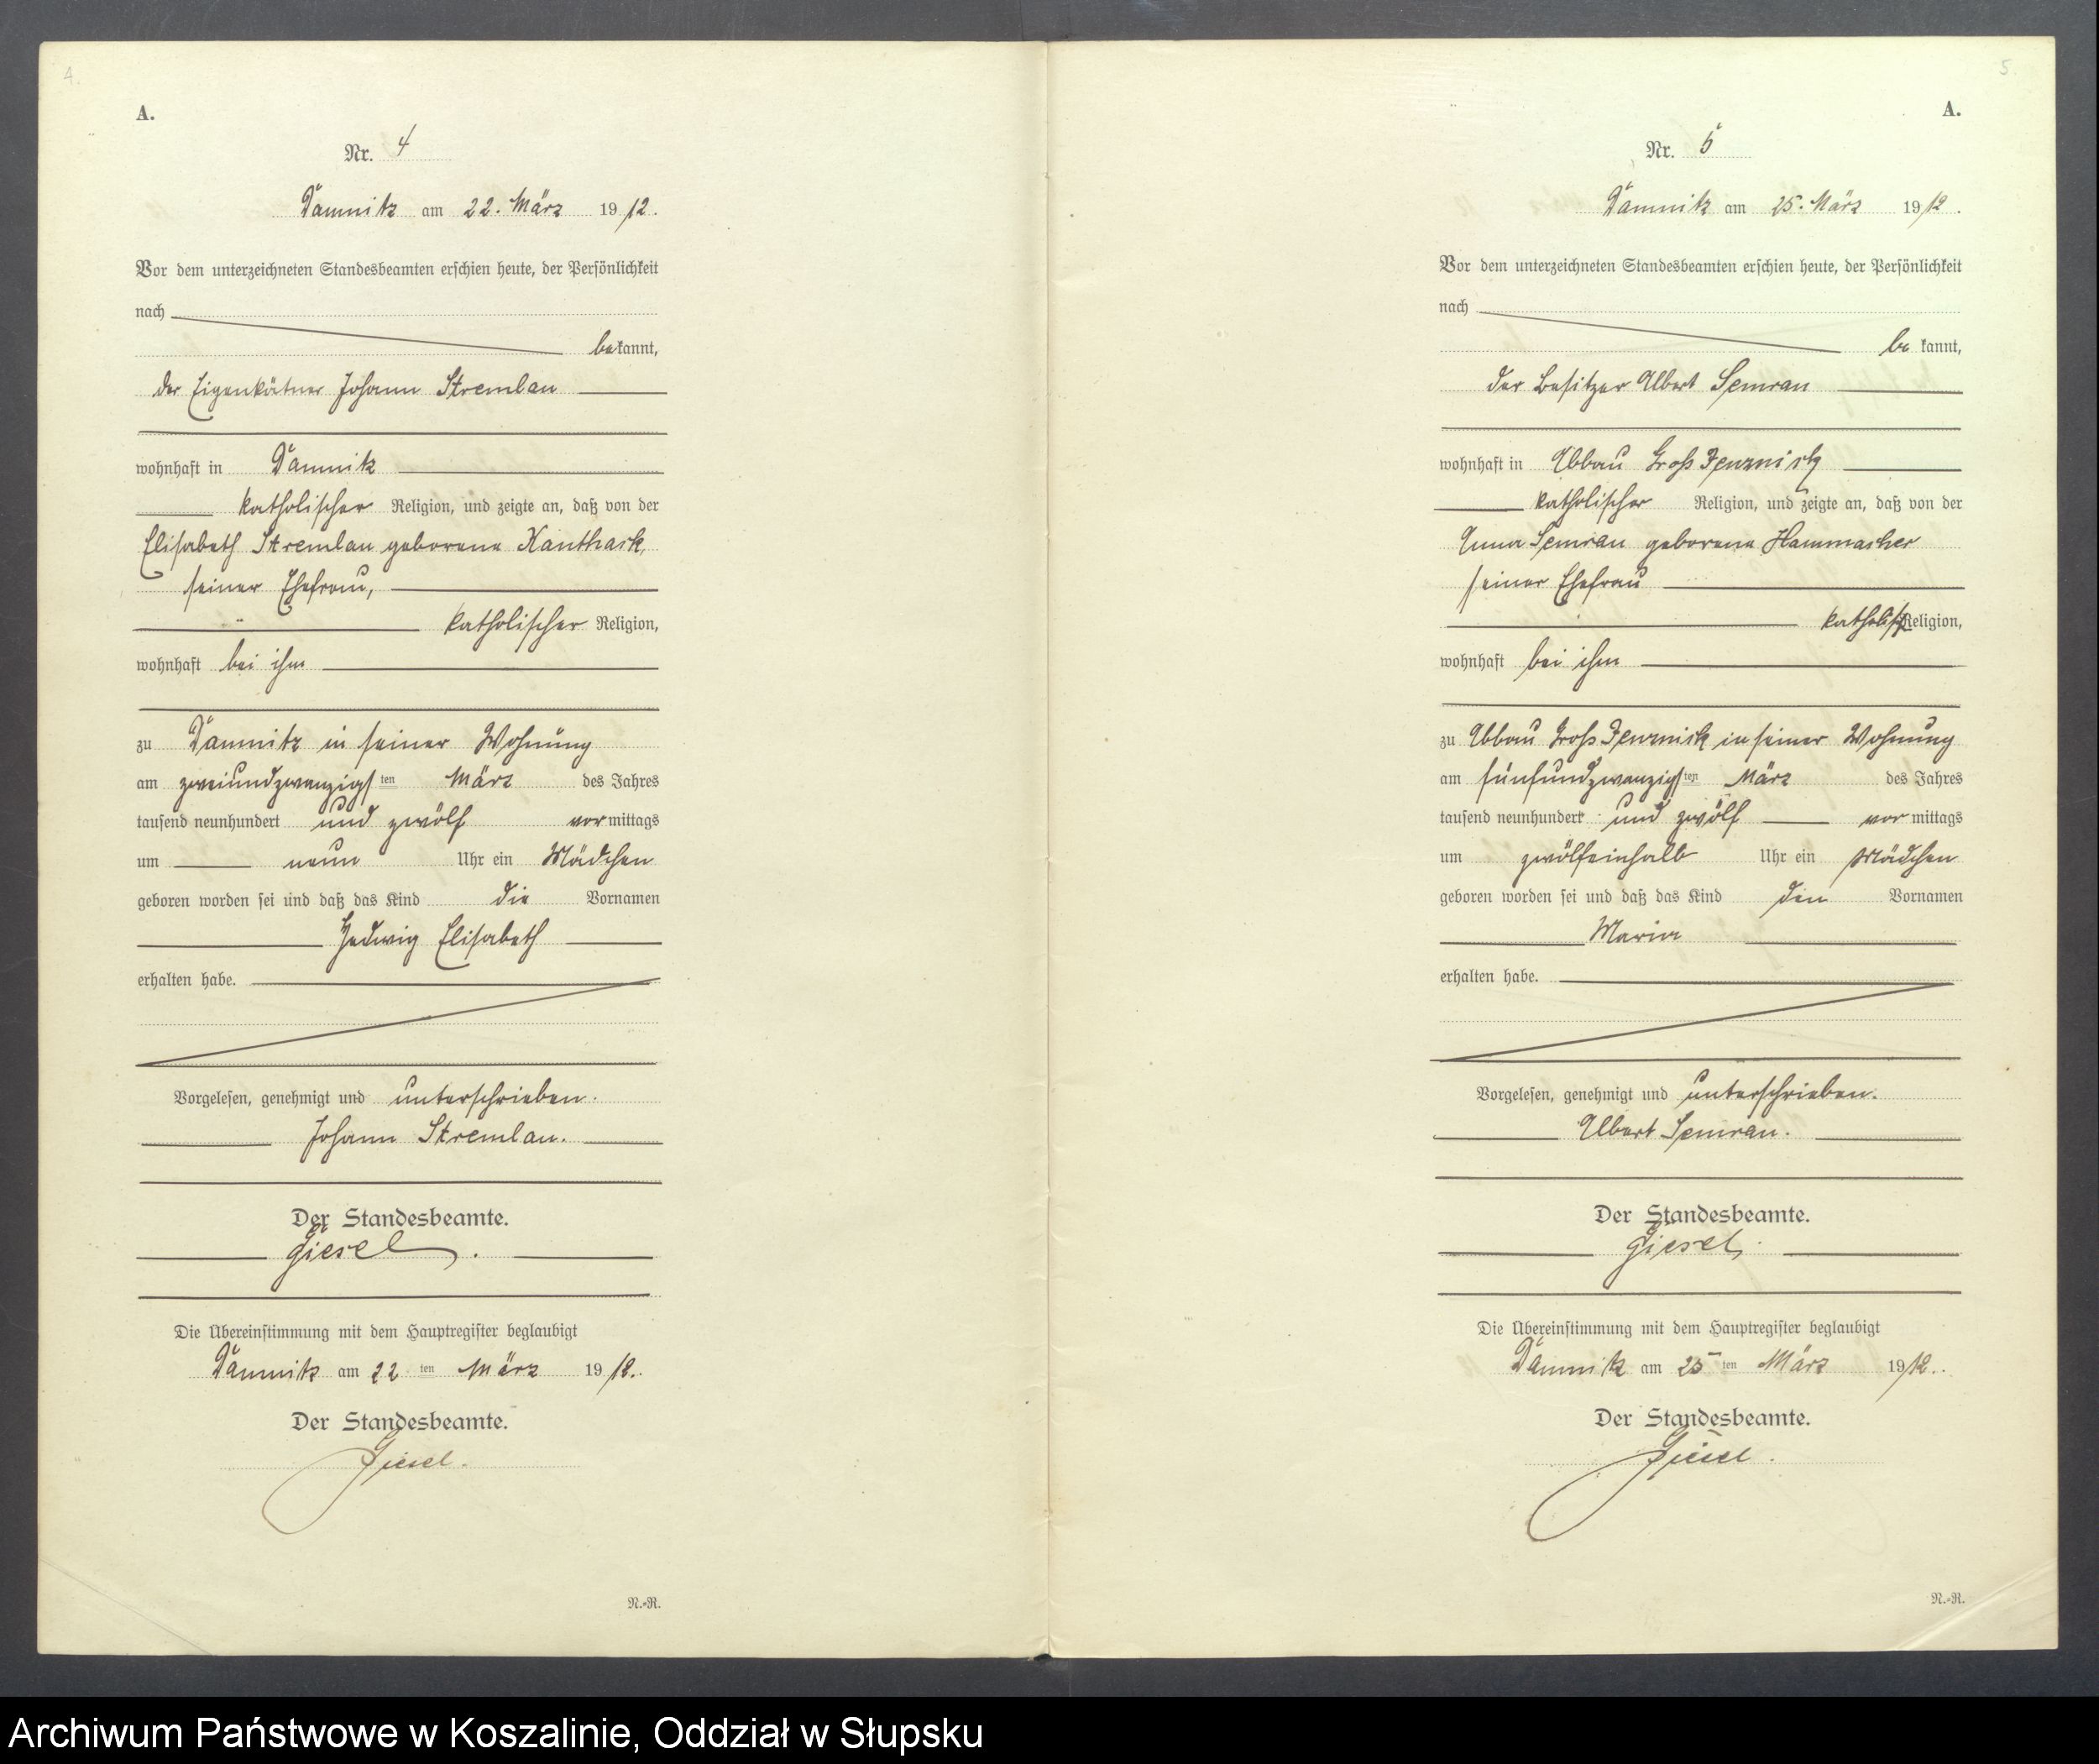 4.
A.
Nr. 4
Damnitz am 22. März 1912.
Vor dem unterzeichneten Standesbeamten erschien heute, der Persönlichkeit
nach
bekannt,
der Eigenkätner Johann Stremlau
wohnhaft in Damnitz
katholischer Religion, und zeigte an, daß von der
Elisabeth Stremlau geborene Kanthack,
seiner Ehefrau,
katholischer Religion,
wohnhaft bei ihm
zu Damnitz in seiner Wohnung
am zweiundzwanzigsten März des Jahres
tausend neunhundert und zwölf vormittags
um neun Uhr ein Mädchen
geboren worden sei und daß das Kind die Vornamen
Hedwig Elisabeth
erhalten habe.
Vorgelesen, genehmigt und unterschrieben.
Johann Stremlau.
Der Standesbeamte.
Giesel.
Die Übereinstimmung mit dem Hauptregister beglaubigt
Damnitz am 22 ten März 1912.
Der Standesbeamte.
Giesel.
N.-R.
5.
A.
Nr. 5
Damnitz am 25. März 1912.
Vor dem unterzeichneten Standesbeamten erschien heute, der Persönlichkeit
nach
bekannt,
der Besitzer Albert Semrau
wohnhaft in Abbau Groß
katholischer Religion, und zeigte an, daß von der
Anna Semrau geborene Hammacher
seiner Ehefrau
kathol. Religion,
wohnhaft bei ihm
zu Abbau Groß in seiner Wohnung
am fünfundzwanzigsten März des Jahres
tausend neunhundert und zwölf vormittags
um zwölfeinhalb Uhr ein Mädchen
geboren worden sei und daß das Kind den Vornamen
Maria
erhalten habe.
Vorgelesen, genehmigt und unterschrieben.
Albert Semrau.
Der Standesbeamte.
Giesel.
Die Übereinstimmung mit dem Hauptregister beglaubigt
Damnitz am 25 ten März 1912.
Der Standesbeamte.
Giesel.
N.-R.
Archiwum Państwowe w Koszalinie, Oddział w Słupsku